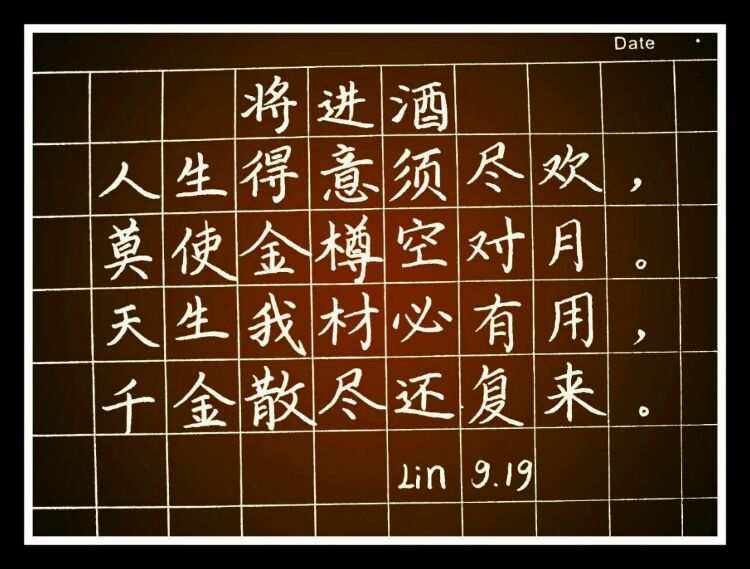 Date
将进酒
人生得意须尽欢，
莫使金樽空对月。
天生我材必有用，
千金散尽还复来。
Lin 9.19